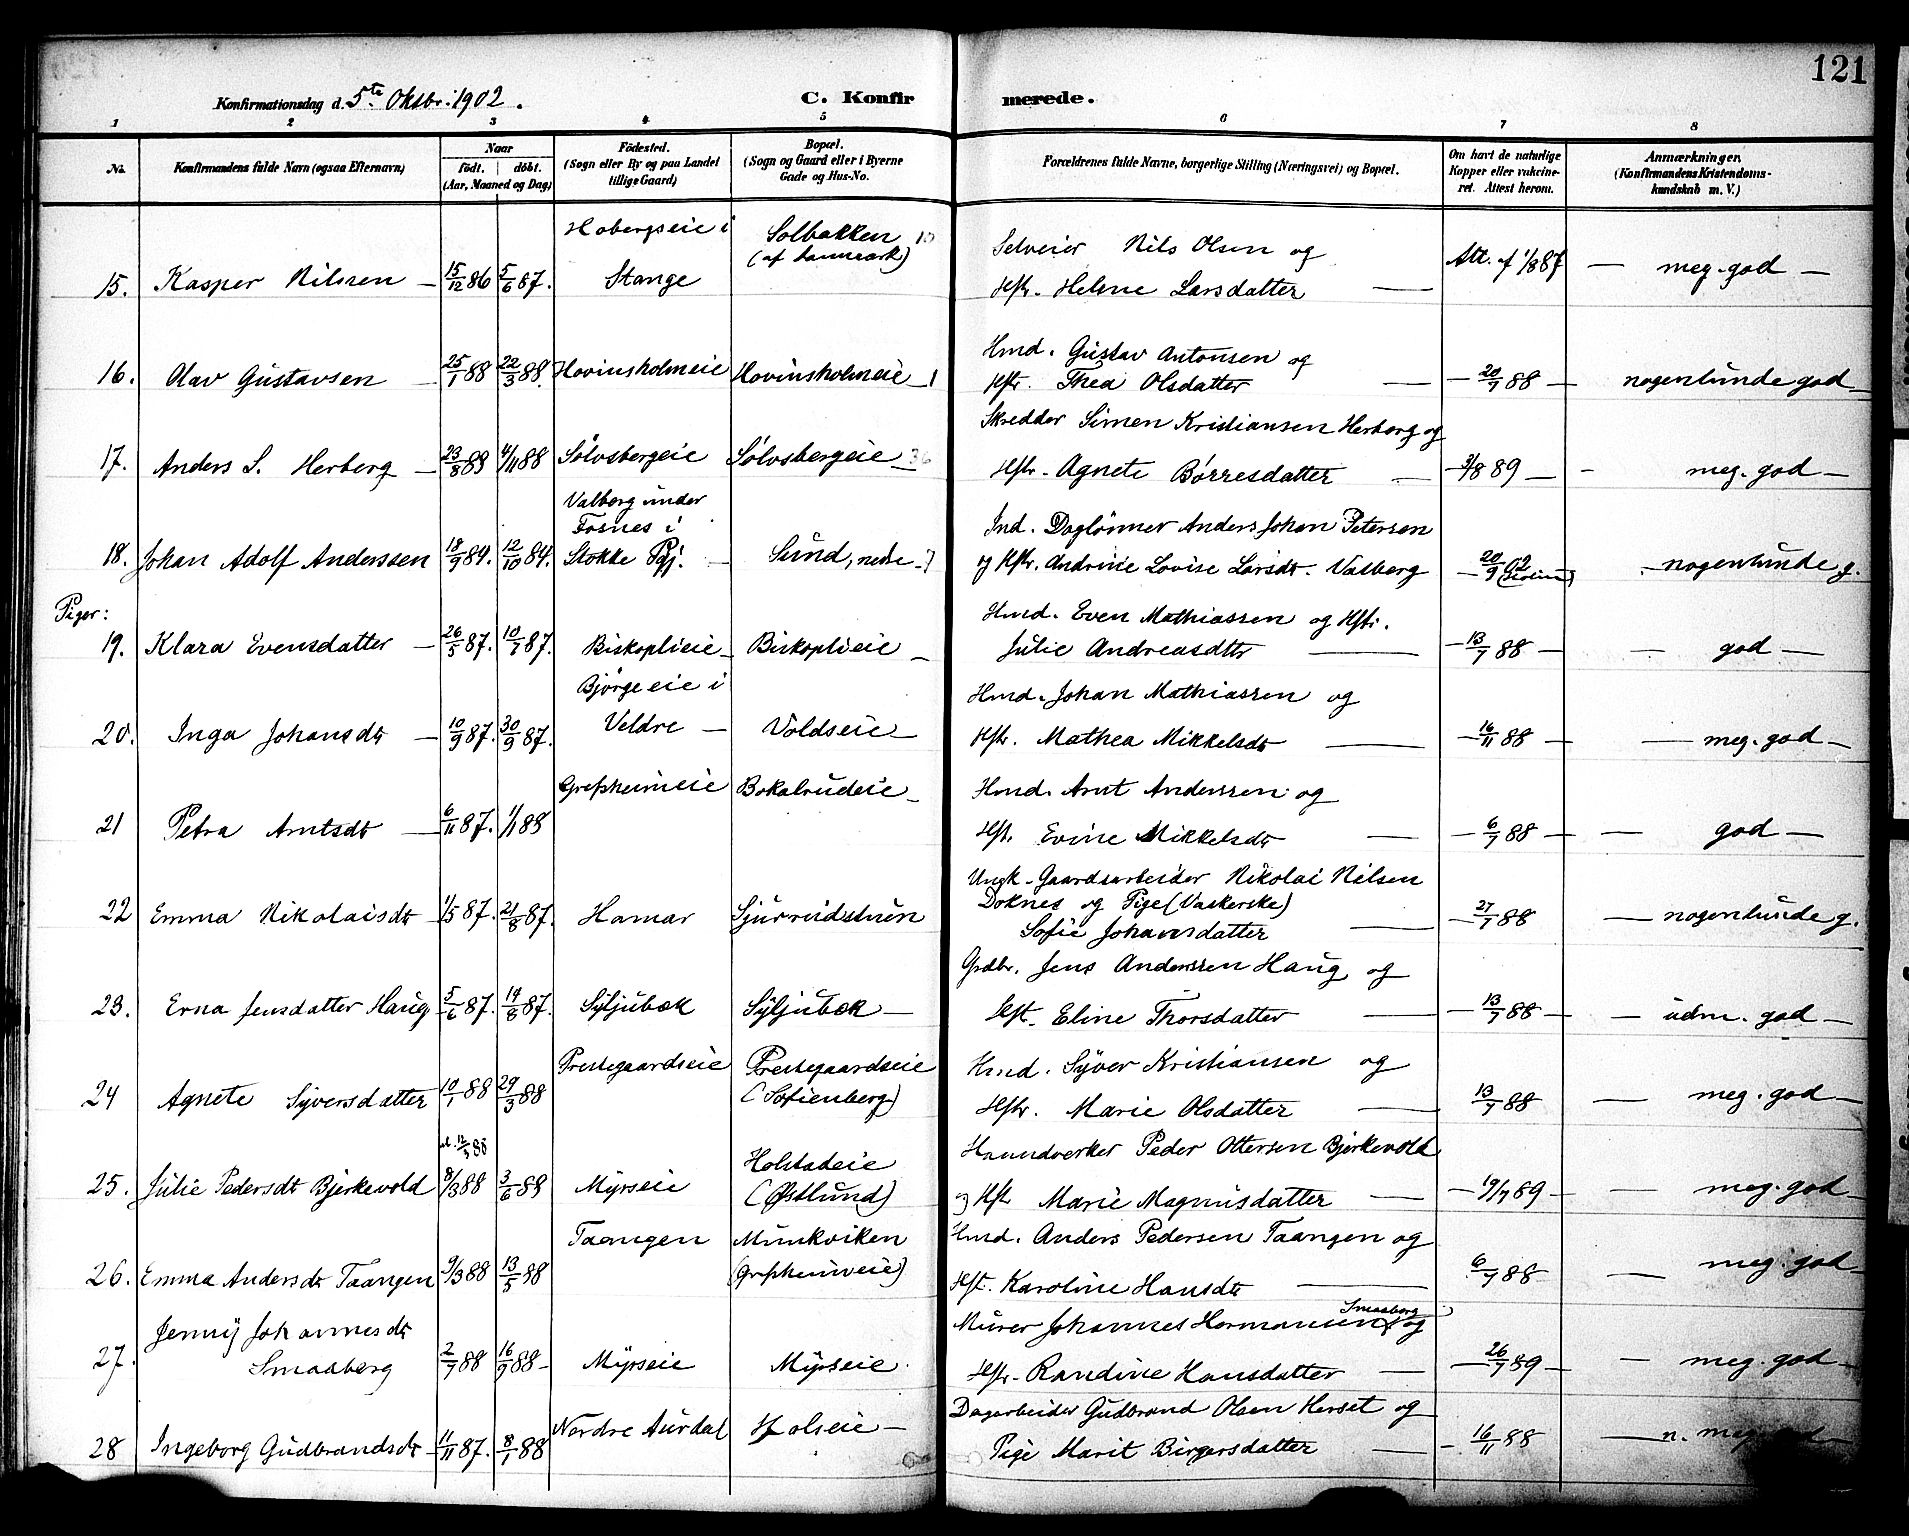 121
Konfirmationsdag d. 5te Oktbr. 1902.
C. Konfirmerede.
1 2 3 4 5 6 7 8
No. Konfirmandens fulde Navn (ogsaa Efternavn) Naar født. døbt. (Aar, Maaned og Dag) Födested. (Sogn eller By og paa Landet tillige Gaard) Bopæl. (Sogn og Gaard eller i Byerne Gade og Hus-No. Forældrenes fulde Navne, borgerlige Stilling (Næringsvei) og Bopæl. Om havt de naturlige Kopper eller vakcineret. Attest herom. Anmærkninger. (Konfirmandens Kristendomskundskab m. V.)
Hobergseie i Solbakken Selveier Nils Olsen og
15. Kasper Nilsen — 15/12 86 5/6 87. Stange Hstr. Helene Larsdatter — Att. af 1/8 87 — meg. god —
Hmd. Gustav Antonsen og
16. Olav Gustavsen — 25/1 88 22/3 88. Hovinsholmeie Hovinsholmeie Hstr. Thea Olsdatter — 20/7 88 — nogenlunde god —
Skredder Simen Kristiansen Herberg og
17. Anders S. Herberg — 23/8 88 4/11 88 Sølvsbergeie Sølvsbergeie Hstr. Agnete Børresdatter — 3/8 89 — meg. god —
Valberg under
Fosnes i Ind. Daglønner Anders Johan Petersen
18. Johan Adolf Anderssen 18/9 84. 12/10 84. Stokke Pgj. — Sund, nedre og Hstr. Andrine Lovise Larsdt. Valberg — 20/9 02 — nogenlunde g.
Piger: Hmd. Even Mathiassen og Hstr.
19. Klara Evensdatter — 26/5 87. 10/7 87. Biskoplieie — Biskoplieie — Julie Andreasdtr — 13/7 88 — god —
Bjørgeeie i Hmd. Johan Mathiassen og
20. Inga Johansdt — 10/9 87. 30/9 87. Veldre — Voldseie — Hstr. Mathea Mikkelsdt — 16/11 88 — meg. god —
Grefsheimeie Bokalrudeie — Hmd. Arnt Anderssen og
21 Petra Arntsdt — 6/11 87. 1/1 88 Hstr. Evine Mikkelsdt — 6/7 88 — god —
Ungk. Gaardsarbeider Nikolai Nilsen
Doknes og Pige (Vaskerske)
22 Emma Nikolaisdt 1/5 87. 21/8 87. Hamar Sjurrudstuen Sofie Johannsdatter — 27/7 88 — nogenlunde g.
Grdbr. Jens Anderssen Haug og
23. Erna Jensdatter Haug 5/6 87. 14/8 87. Syljubæk Syljubæk — Hst. Eline Thorsdatter — 13/7 88 — udm. god —
Prestegaardseie Prestegaardseie Hmd. Syver Kristiansen og
24 Agnete Syversdatter 10/1 88 29/3 88 (Sofienberg) Hstr. Marie Olsdatter — 13/7 88 — meg. god —
Holstadeie Haandverker Peder Ottersen Bjerkevold
25. Julie Pedersdt Bjerkevold 8/3 88 3/6 88 Myrseie (Østlund) og Hstr Marie Magnusdatter — 19/7 89 — meg. god —
Taangen Munkviken Hmd. Anders Pedersen Taangen og
26. Emma Andersdt Taangen 9/3 88 13/5 88 (Grefsheimeie) Hst. Karoline Hansdt — 6/7 88 — meg. god —
Jenny Johannesdt Murer Johannes Hermansen Smaaberg og
27. Smaaberg 2/7 88 16/9 88 — Myrseie Myrseie Hstr. Randine Hansdatter — 26/7 89 — meg. god —
Nordre Aurdal Holseie — Dagarbeider Gudbrand Olsen Herset og
28 Ingeborg Gudbrandsdt 11/11 87. 8/1 88 Pige Marit Birgersdatter — 16/11 88 — n. meg.